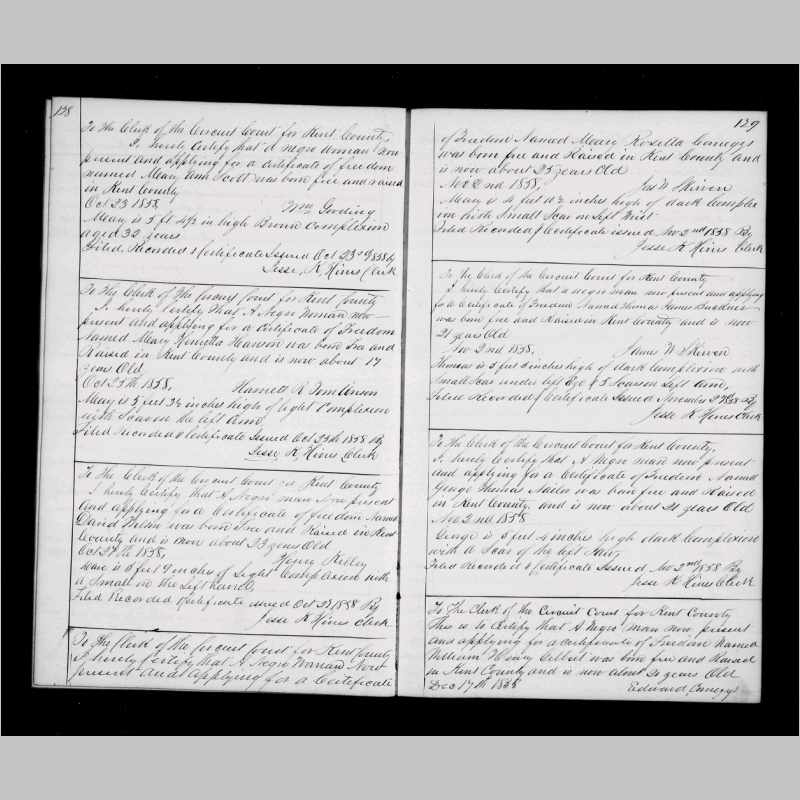 128
To the Clerk of the Circuit Court for Kent County,
I, hereby Certify that a negro woman now
present and applying for a Certificate of freedom
named Mary Ann Scott was born free and raised
in Kent County
Oct 23 1858, Wm Gooding
Mary is 5 ft 4½ in high Brown Complexion
aged 32 years
Filed Recorded & Certificate Issued Oct 23d 1858 by
Jesse K Hines Clerk
To The Clerk of The Circuit Court for Kent County
I, hereby Certify That A Negro Woman now
present and applying for a Certificate of Freedom
Named Mary Henrietta was born Free and
Raised in Kent County and is now about 17
years Old
Oct 25th 1858, Harriett R Tomlinson
Mary is 5 feet 2½ inches high of Light Complexion
with Scar on the left Arm,
Filed Recorded & Certificate Issued Oct 25th 1858 By
Jesse K Hines Clerk
To The Clerk of the Circuit Court for Kent County
I hereby Certify that A Negro man Now present
and applying for a Certificate of freedom Named
David was born Free and Raised in Kent
County and is now about 23 years Old
Oct 27th 1858, Henry
Dave is 5 feet 7 inches of Light Complexion with
a Small on the Left hand,
Filed Recorded Certificate issued Oct 1858 By
Jesse K Hines Clerk
To The Clerk of the Circuit Court for Kent County
I hereby Certify that A Negro Woman Now
present and Applying for a Certificate
129
of Freedom Named Mary Rosetta Comegys
was born free and Raised in Kent County and
is now about 25 years Old
Nov 2nd 1858, Jas W Skirven
Mary is 4 feet inches high of dark Complex
ion with Small Scar on Left Wrist
Filed Recorded & Certificate issued Nov 2nd 1858 By
Jesse K Hines Clerk
To The Clerk of the Circuit Court for Kent County
I hereby Certify that a negro man now present and applying
for a Certificate of Freedom Named Thomas James
was born free and Raised in Kent County and is now
21 years Old
Nov 2nd 1858, James W Skirven
Thomas is 5 feet 5 inches high of dark Complexion with
Small Scar under left Eye & Scar on Left Arm,
Filed Recorded & Certificate Issued November 2d 1858 By
Jesse K Hines Clerk
To the Clerk of the Circuit Court for Kent County,
I, hereby Certify that A Negro man now present
and applying for a Certificate of Freedom Named
George Thomas was born free and Raised
in Kent County, and is now about 21 years Old
Nov 2nd 1858
George is 5 feet 4 inches high dark Complexion
with a Scar of the left
Filed Recorded & Certificate Issued Nov 2nd 1858 By
Jesse K Hines Clerk
To The Clerk of the Circuit Court for Kent County
This is to Certify that A Negro man now present
and applying for a Certificate of Freedom Named
William Henry was born free and Raised
in Kent County and is now about 21 years Old
Dec 17th 1858 Edward Comegys